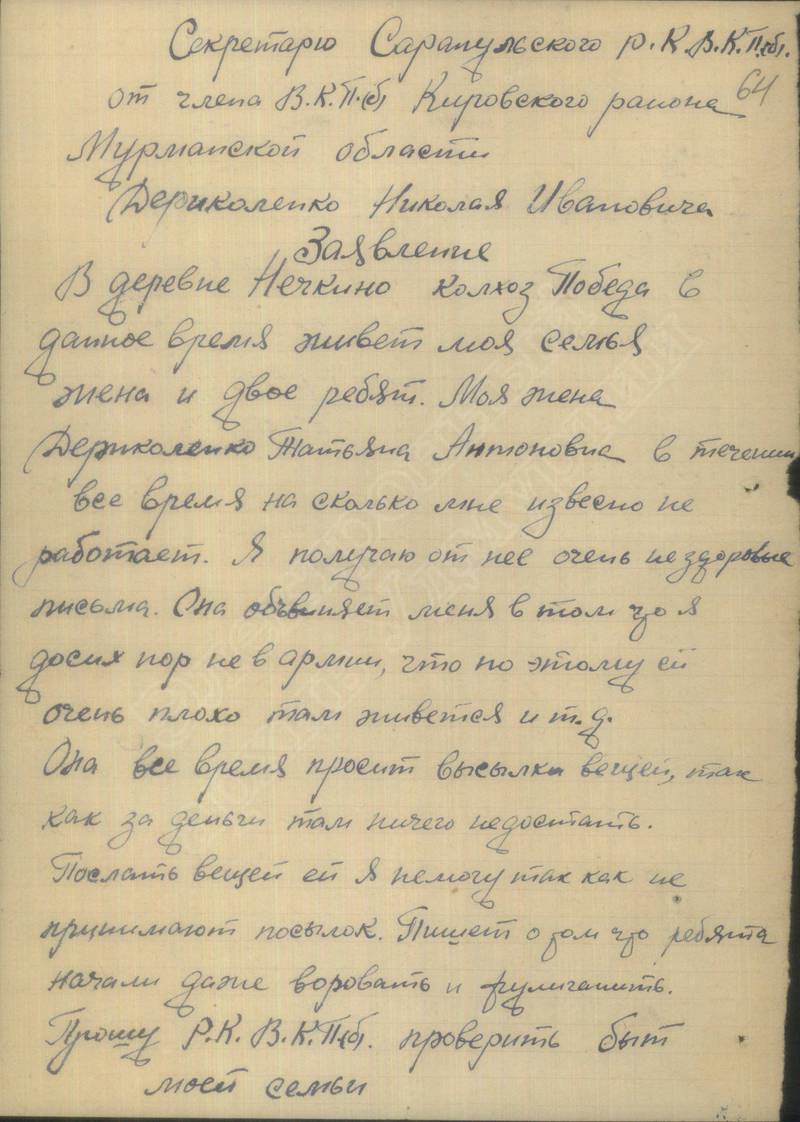 Секретарю Сарапульского Р.К В.К.П.(б).
64
от члена В.К.П.(б) Кировского района
Мурманской области
Дериколенко Николая Ивановича
Заявление
В деревне Нечкино колхоз Победа в
данное время живет моя семья
жена и двое ребят. Моя жена
Дериколенко Татьяна Антоновна в течении
все время на сколько мне извесно не
работает. Я получаю от нее очень нездоровые
письма. Она объвиняет меня в том что я
досих пор не в армии, что по этому ей
очень плохо там живется и т.д.
Она все время просит высылки вещей, так
как за деньги там ничего недостать.
Послать вещей ей я немогу так как не
принимают посылок. Пишет о том что ребята
начали даже воровать и хулиганить.
Прошу Р.К. В.К.П(б). проверить быт
моей семьи